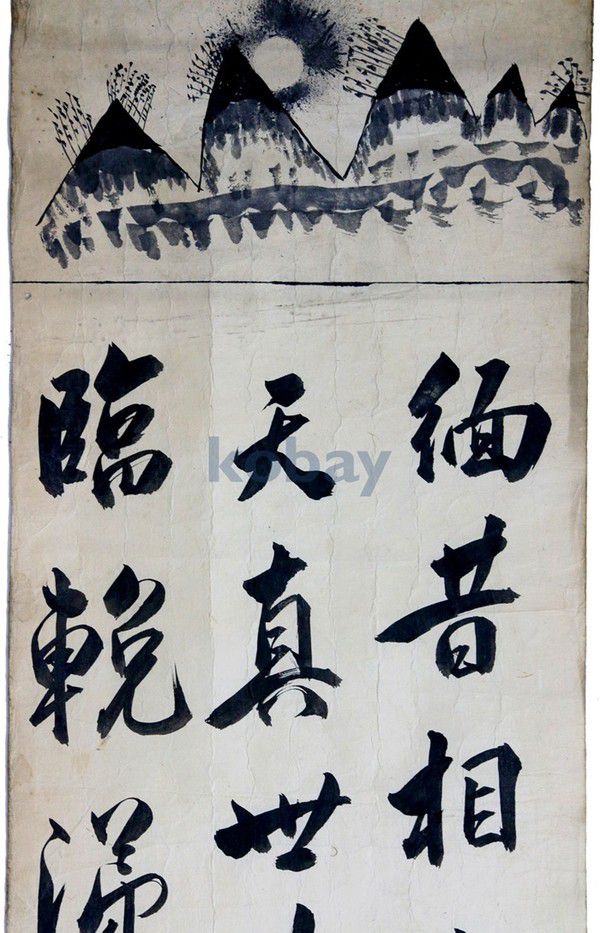 緬昔相
天真世
臨輓
kobay